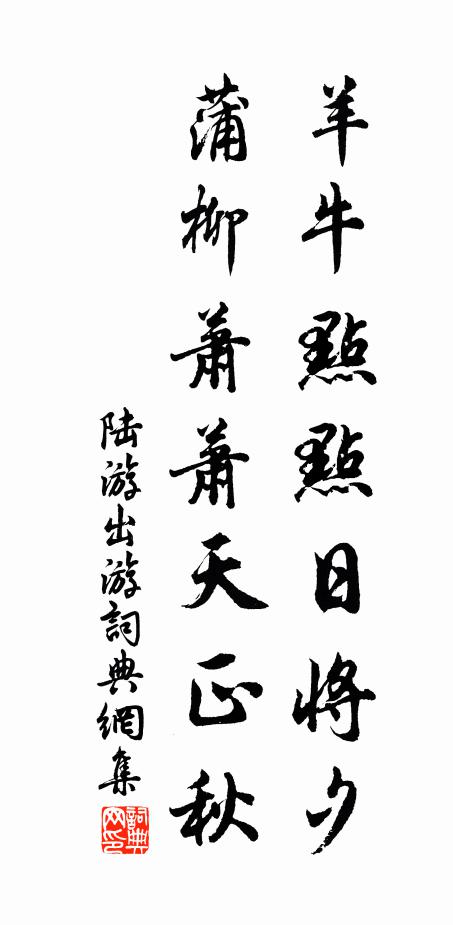 羊牛點點日將夕
蒲柳蕭蕭天正秋
陆游出游詞典網集
詞典网印